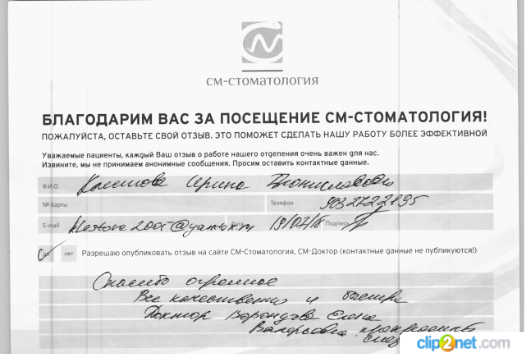 СМ-СТОМАТОЛОГИЯ
БЛАГОДАРИМ ВАС ЗА ПОСЕЩЕНИЕ СМ-СТОМАТОЛОГИЯ!
ПОЖАЛУЙСТА, ОСТАВЬТЕ СВОЙ ОТЗЫВ. ЭТО ПОМОЖЕТ СДЕЛАТЬ НАШУ РАБОТУ БОЛЕЕ ЭФФЕКТИВНОЙ
Уважаемые пациенты, каждый Ваш отзыв о работе нашего отделения очень важен для нас.
Извините, мы не принимаем анонимные сообщения. Просим оставить контактные данные.
Ф.И.О.
№ Карты Телефон
E-mail 19/02/18 Подпись
да нет Разрешаю опубликовать отзыв на сайте СМ-Стоматология, СМ-Доктор (контактные данные не публикуются!)
Спасибо огромное
Все качественно и быстро
Доктор Елена
Валерьевна
clip2net.com